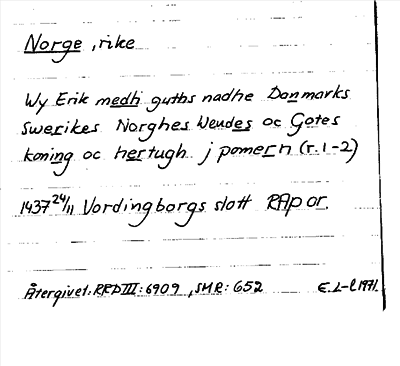 Norge, rike
Wy Erik medh guths nadhe Danmarks
Swerikes Norghes Wendes oc Gotes
koning oc hertugh j pomern (r. 1-2)
1437 24/11 Vordingborgs slott RAp or.
Återgivet: RPD III: 6909, SMR: 652 E. L-l 1971.